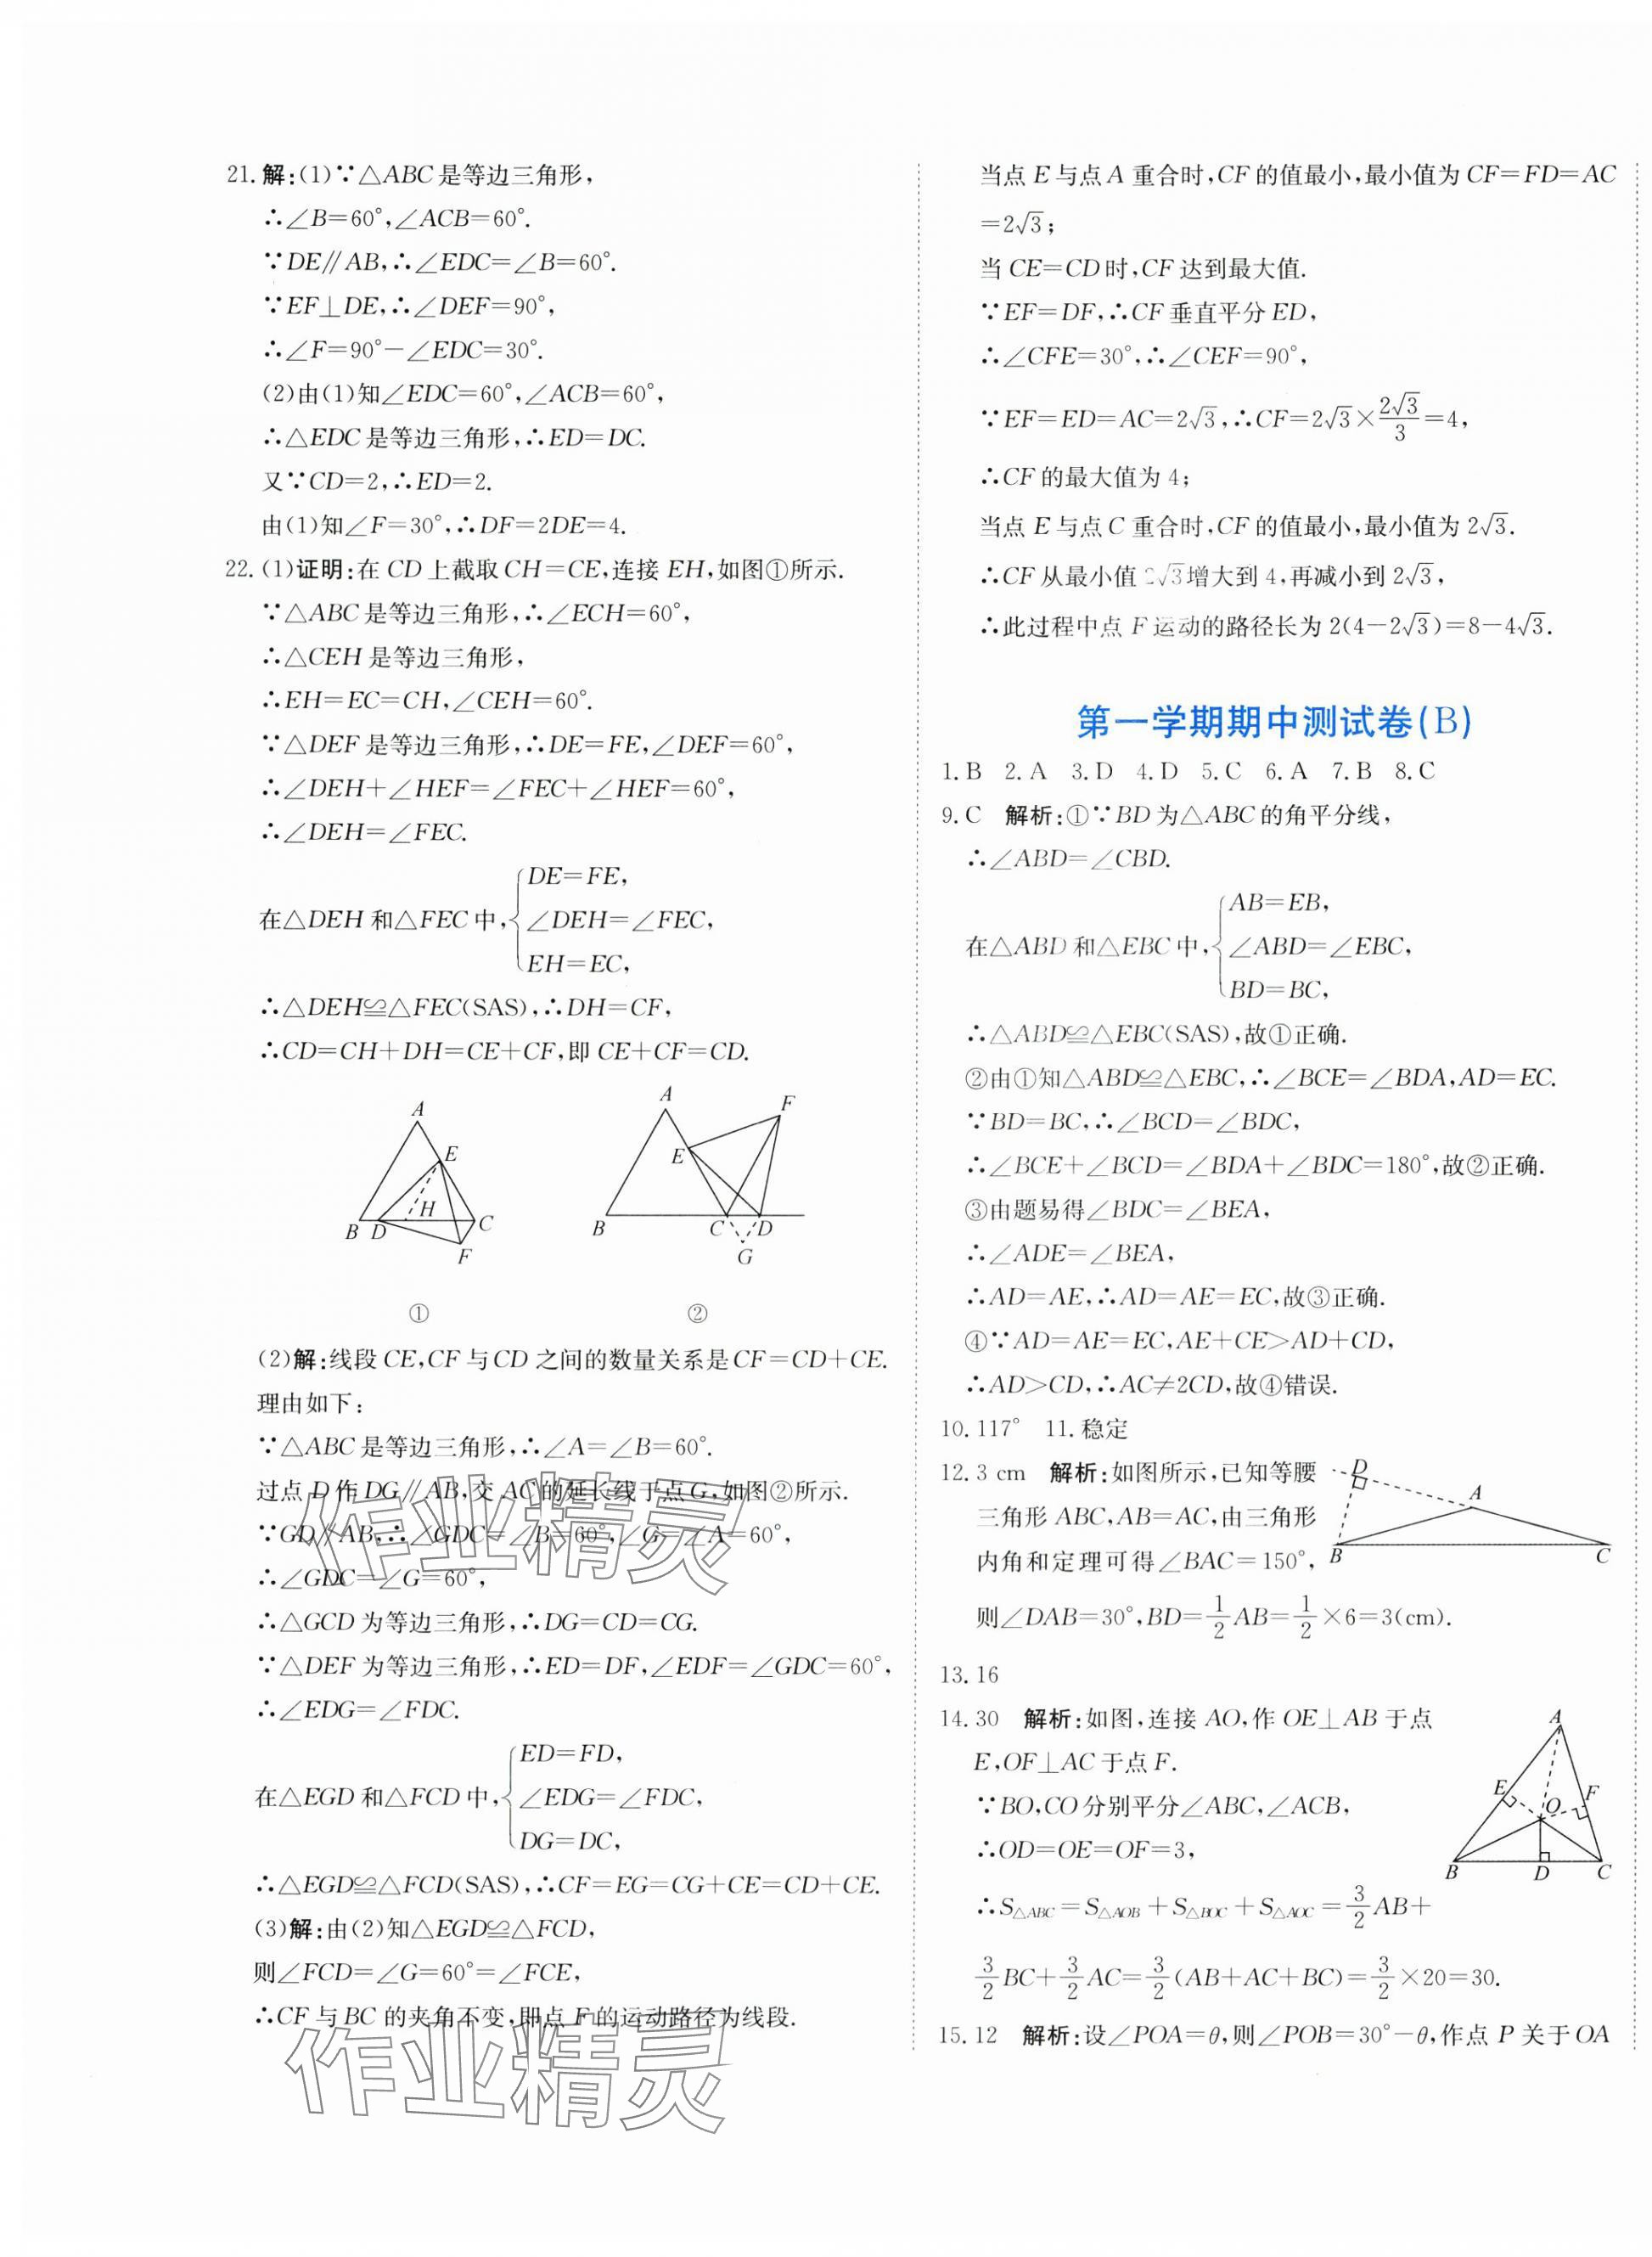 21. 解:(1)∵△ABC是等边三角形,
∴∠B=60°,∠ACB=60°.
∵DE∥AB,∴∠EDC=∠B=60°.
∵EF⊥DE,∴∠DEF=90°,
∴∠F=90°-∠EDC=30°.
(2)由(1)知∠EDC=60°,∠ACB=60°,
∴△EDC是等边三角形,∴ED=DC.
又∵CD=2,∴ED=2.
由(1)知∠F=30°,∴DF=2DE=4.
22. (1)证明:在CD上截取CH=CE,连接EH,如图①所示.
∵△ABC是等边三角形,∴∠ECH=60°,
∴△CEH是等边三角形,
∴EH=EC=CH,∠CEH=60°.
∵△DEF是等边三角形,∴DE=FE,∠DEF=60°,
∴∠DEH+∠HEF=∠FEC+∠HEF=60°,
∴∠DEH=∠FEC.
在△DEH和△FEC中,{DE=FE,
∠DEH=∠FEC,
EH=EC,
∴△DEH≌△FEC(SAS),∴DH=CF,
∴CD=CH+DH=CE+CF,即CE+CF=CD.
A E H B D C F
①
A F E B C D G
②
(2)解:线段CE,CF与CD之间的数量关系是CF=CD+CE.
理由如下:
∵△ABC是等边三角形,∴∠A=∠B=60°.
过点D作DG∥AB,交AC的延长线于点G,如图②所示.
∵GD∥AB,∴∠GDC=∠B=60°,∠G=∠A=60°,
∴∠GDC=∠G=60°,
∴△GCD为等边三角形,∴DG=CD=CG.
∵△DEF为等边三角形,∴ED=DF,∠EDF=∠GDC=60°,
∴∠EDG=∠FDC.
在△EGD和△FCD中,{ED=FD,
∠EDG=∠FDC,
DG=DC,
∴△EGD≌△FCD(SAS),∴CF=EG=CG+CE=CD+CE.
(3)解:由(2)知△EGD≌△FCD,
则∠FCD=∠G=60°=∠FCE,
∴CF与BC的夹角不变,即点F的运动路径为线段.
作业精灵
作业精灵
当点E与点A重合时,CF的值最小,最小值为CF=FD=AC
=2√3;
当CE=CD时,CF达到最大值.
∵EF=DF,∴CF垂直平分ED,
∴∠CFE=30°,∴∠CEF=90°,
∵EF=ED=AC=2√3,∴CF=2√3×2√3/3=4,
∴CF的最大值为4;
当点E与点C重合时,CF的值最小,最小值为2√3.
∴CF从最小值2√3增大到4,再减小到2√3,
∴此过程中点F运动的路径长为2(4-2√3)=8-4√3.
第一学期期中测试卷(B)
1. B 2. A 3. D 4. D 5. C 6. A 7. B 8. C
9. C 解析:①∵BD为△ABC的角平分线,
∴∠ABD=∠CBD.
在△ABD和△EBC中,{AB=EB,
∠ABD=∠EBC,
BD=BC,
∴△ABD≌△EBC(SAS),故①正确.
②由①知△ABD≌△EBC,∴∠BCE=∠BDA,AD=EC.
∵BD=BC,∴∠BCD=∠BDC,
∴∠BCE+∠BCD=∠BDA+∠BDC=180°,故②正确.
③由题易得∠BDC=∠BEA,
∴∠ADE=∠BEA,
∴AD=AE,∴AD=AE=EC,故③正确.
④∵AD=AE=EC,AE+CE>AD+CD,
∴AD>CD,∴AC≠2CD,故④错误.
10. 117° 11. 稳定
12. 3 cm 解析:如图所示,已知等腰
三角形ABC,AB=AC,由三角形
内角和定理可得∠BAC=150°,
则∠DAB=30°,BD=1/2AB=1/2×6=3(cm).
D A B C
13. 16
14. 30 解析:如图,连接AO,作OE⊥AB于点
E,OF⊥AC于点F.
∵BO,CO分别平分∠ABC,∠ACB,
∴OD=OE=OF=3,
∴S△ABC=S△AOB+S△BOC+S△AOC=3/2AB+
3/2BC+3/2AC=3/2(AB+AC+BC)=3/2×20=30.
A E F O B D C
15. 12 解析:设∠POA=θ,则∠POB=30°-θ,作点P关于OA